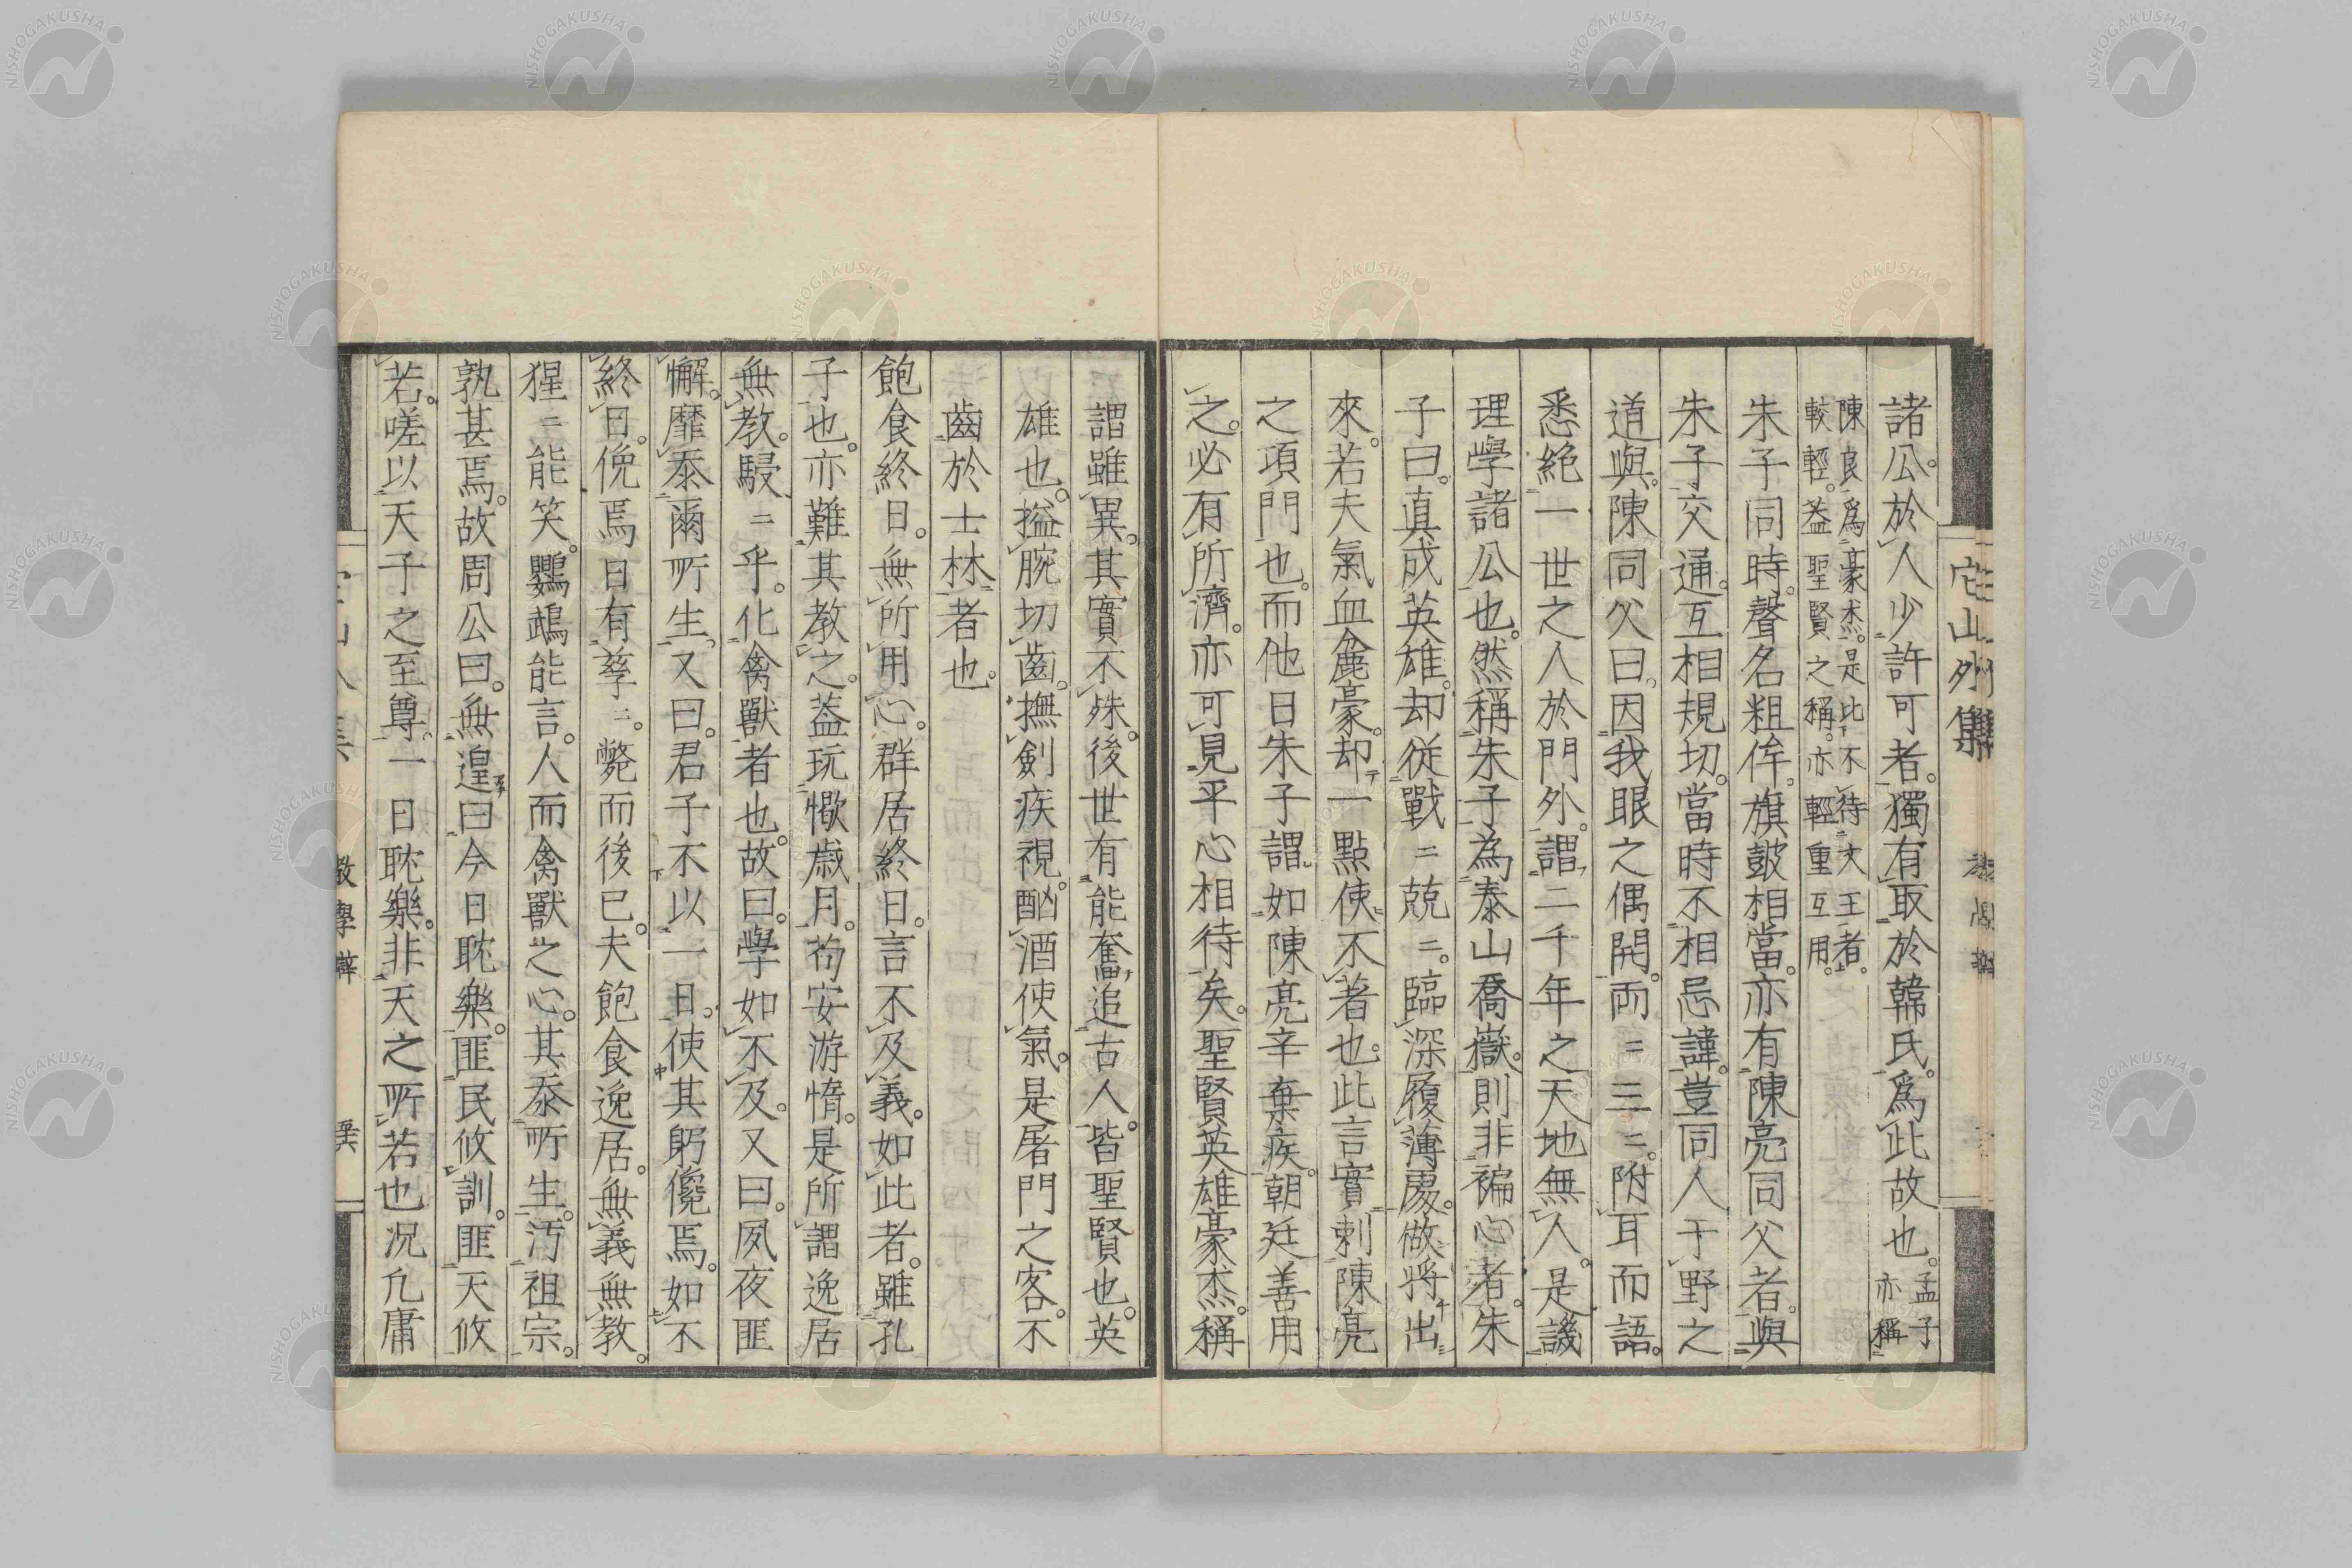 諸公。於人少許可者。獨有取於韓氏。爲此故也。孟子亦稱
陳良爲豪杰。是比不待文王者。
較輕。蓋聖賢之稱。亦輕重互用。
朱子同時。聲名粗侔。旗鼓相當。亦有陳亮同父者。與
朱子交通。互相規切。當時不相忌諱。豈同人于野之
道與。陳同父曰。因我眼之偶開。而〻三〻。附耳而語。
悉絶一世之人於門外。謂二千年之天地無人。是譏
理學諸公也。然稱朱子為泰山喬嶽。則非褊心者。朱
子曰。真成英雄。却從戰〻兢〻。臨深履薄處。做將出
來。若夫氣血麁豪。却一點使不著也。此言實刺陳亮
之項門也。而他日朱子謂。如陳亮辛棄疾。朝廷善用
之。必有所濟。亦可見平心相待矣。聖賢英雄豪杰。稱
謂雖異。其實不殊。後世有能奮追古人。皆聖賢也。英
雄也。搤腕切齒。撫劍疾視。酗酒使氣。是屠門之客。不
齒於士林者也。
飽食終日。無所用心。群居終日。言不及義。如此者。雖孔
子也。亦難其教之。蓋玩愒歳月。苟安游惰。是所謂逸居
無教。駸〻乎。化禽獸者也。故曰。學如不及。又曰。夙夜匪
懈。靡忝爾所生。又曰。君子不以一日。使其躬儳焉。如不
終日。俛焉日有孳〻。斃而後已。夫飽食逸居。無義無教。
猩〻能笑。鸚鵡能言。人而禽獸之心。其忝所生。汚祖宗。
孰甚焉。故周公曰。無遑曰今日耽樂。匪民攸訓。匪天攸
若。嗟以天子之至尊。一日耽樂。非天之所若也况凡庸
宅山外集
教學辯